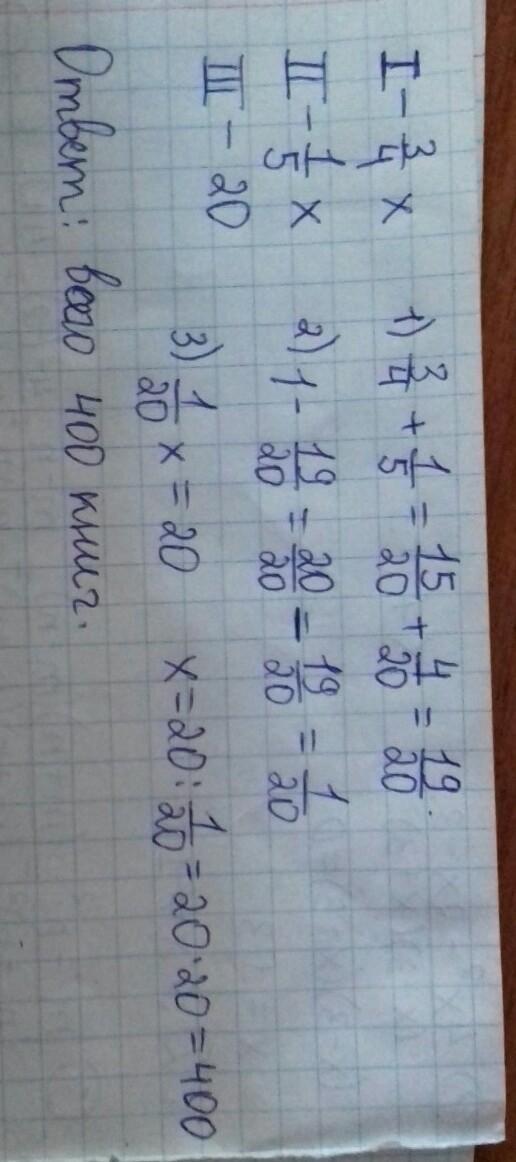 I - 3/4 x
II - 1/5 x
III - 20
1) 3/4 + 1/5 = 15/20 + 4/20 = 19/20.
2) 1 - 19/20 = 20/20 - 19/20 = 1/20
3) 1/20 x = 20 x = 20 : 1/20 = 20 · 20 = 400
Ответ: всего 400 книг.